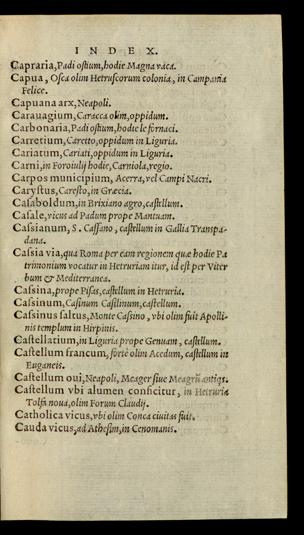 INDEX.
Capraria, Padi ostium, hodie Magna vaca.
Capua, Osca olim Hetruscorum colonia, in Campania
Felice.
Capuana arx, Neapoli.
Carauagium, Caracca olim, oppidum.
Carbonaria, Padi ostium, hodie le fornaci.
Carretium, Caretto, oppidum in Liguria.
Cariatum, Cariati, oppidum in Liguria.
Carni, in Foroiulij hodie, Carniola, regio.
Carpos municipium, Acerra, vel Campi Nacri.
Carystus, Caresto, in Græcia.
Casaboldum, in Brixiano agro, castellum.
Casale, vicus ad Padum prope Mantuam.
Cassianum, S. Cassano, castellum in Gallia Transpa-
dana.
Cassia via, qua Roma per eam regionem quæ hodie Pa
trimonium vocatur in Hetruriam itur, id est per Viter
bum & Mediterranea.
Cassina, prope Pisas, castellum in Hetruria.
Cassinum, Casinum Casilinum, castellum.
Cassinus saltus, Monte Cassino, vbi olim fuit Apolli-
nis templum in Hirpinis.
Castellatium, in Liguria prope Genuam, castellum.
Castellum francum, fortè olim Acedum, castellum in
Euganeis.
Castellum oui, Neapoli, Meager siue Meagrū antiqs.
Castellum vbi alumen conficitur, in Hetruria
Tolfa noua, olim Forum Claudij.
Catholica vicus, vbi olim Conca ciuitas fuit.
Cauda vicus, ad Athesim, in Cenomanis.